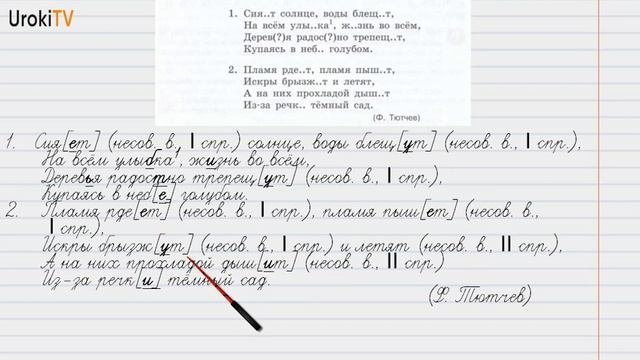 UrokiTV
1. Сия..т солнце, воды блещ..т,
На всём улы..ка¹, ж..знь во всём,
Дерев(?)я радос(?)но трепещ..т,
Купаясь в неб.. голубом.
2. Пламя рде..т, пламя пыш..т,
Искры брызж..т и летят,
А на них прохладой дыш..т
Из-за речк.. тёмный сад.
(Ф. Тютчев)
1. Сия[ет] (несов. в., I спр.) солнце, воды блещ[ут] (несов. в., I спр.),
На всём улыбка¹, жизнь во всём,
Деревья радостно трепещ[ут] (несов. в., I спр.),
Купаясь в неб[е] голубом.
2. Пламя рде[ет] (несов. в., I спр.), пламя пыш[ет] (несов. в.,
I спр.),
Искры брызж[ут] (несов. в., I спр.) и летят (несов. в., II спр.),
А на них прохладой дыш[ит] (несов. в., II спр.)
Из-за речк[и] тёмный сад.
(Ф. Тютчев)